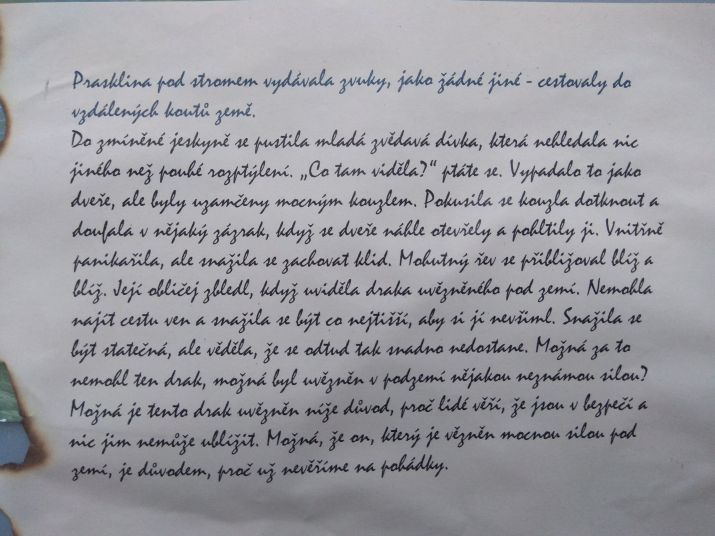 Prasklina pod stromem vydávala zvuky, jako žádné jiné - cestovaly do
vzdálených koutů země.
Do zmíněné jeskyně se pustila mladá zvědavá dívka, která nehledala nic
jiného než pouhé rozptýlení. „Co tam viděla?“ ptáte se. Vypadalo to jako
dveře, ale byly uzamčeny mocným kouzlem. Pokusila se kouzla dotknout a
doufala v nějaký zázrak, když se dveře náhle otevřely a pohltily ji. Vnitřně
panikařila, ale snažila se zachovat klid. Mohutný řev se přibližoval blíž a
blíž. Její obličej zbledl, když uviděla draka uvězněného pod zemí. Nemohla
najít cestu ven a snažila se být co nejtišší, aby si jí nevšiml. Snažila se
být statečná, ale věděla, že se odtud tak snadno nedostane. Možná za to
nemohl ten drak, možná byl uvězněn v podzemí nějakou neznámou silou?
Možná je tento drak uvězněn níže důvod, proč lidé věří, že jsou v bezpečí a
nic jim nemůže ublížit. Možná, že on, který je vězněn mocnou silou pod
zemí, je důvodem, proč už nevěříme na pohádky.